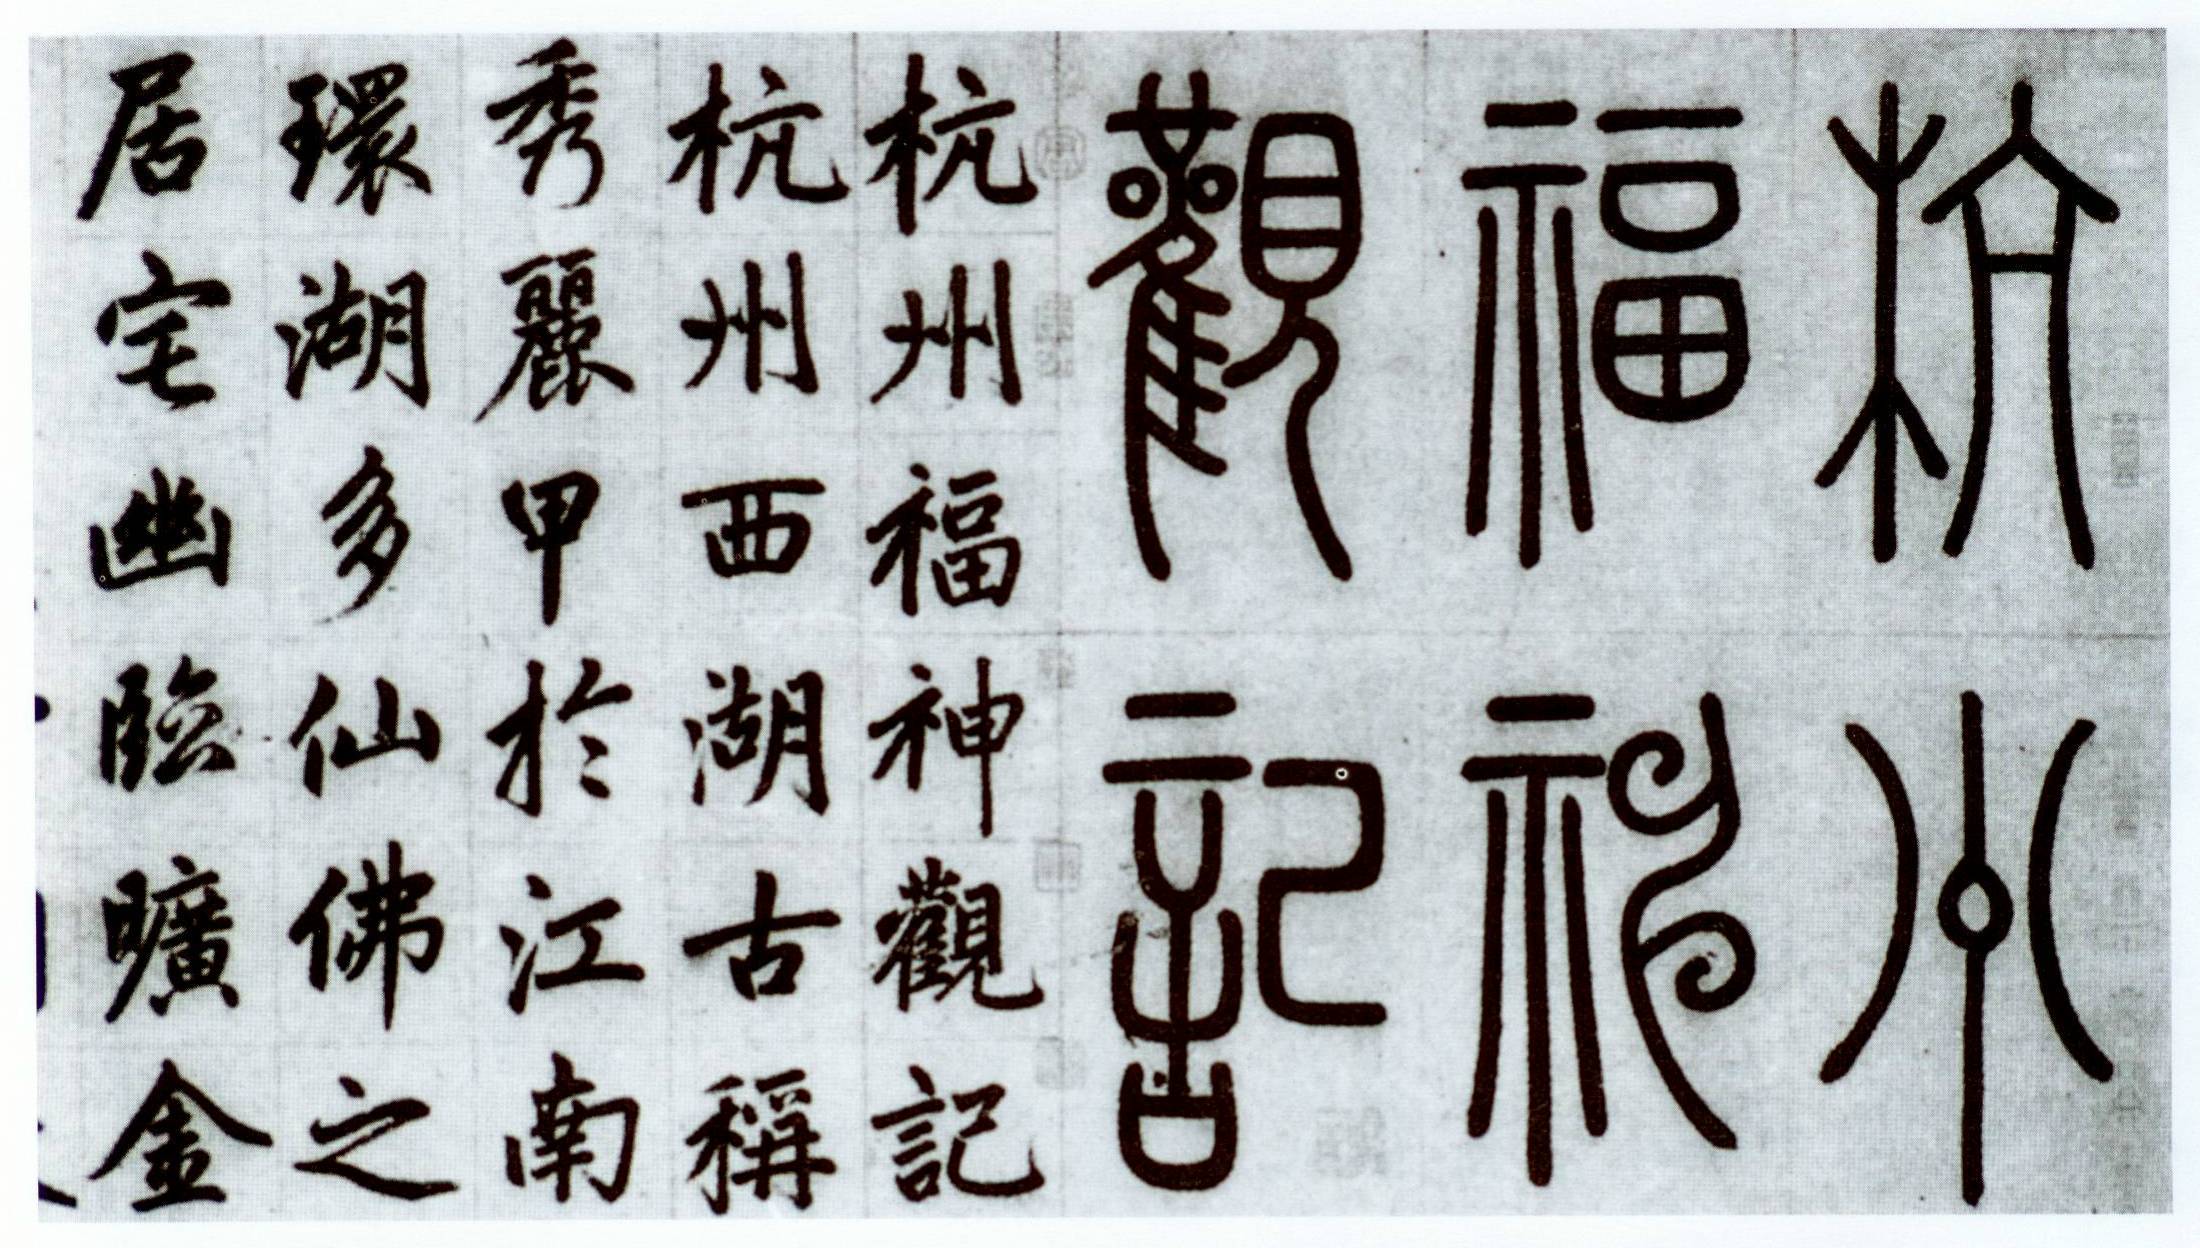 杭州
福神
觀記
杭州福神觀記
杭州西湖古稱
秀麗甲於江南
環湖多仙佛之
居宅幽臨曠金